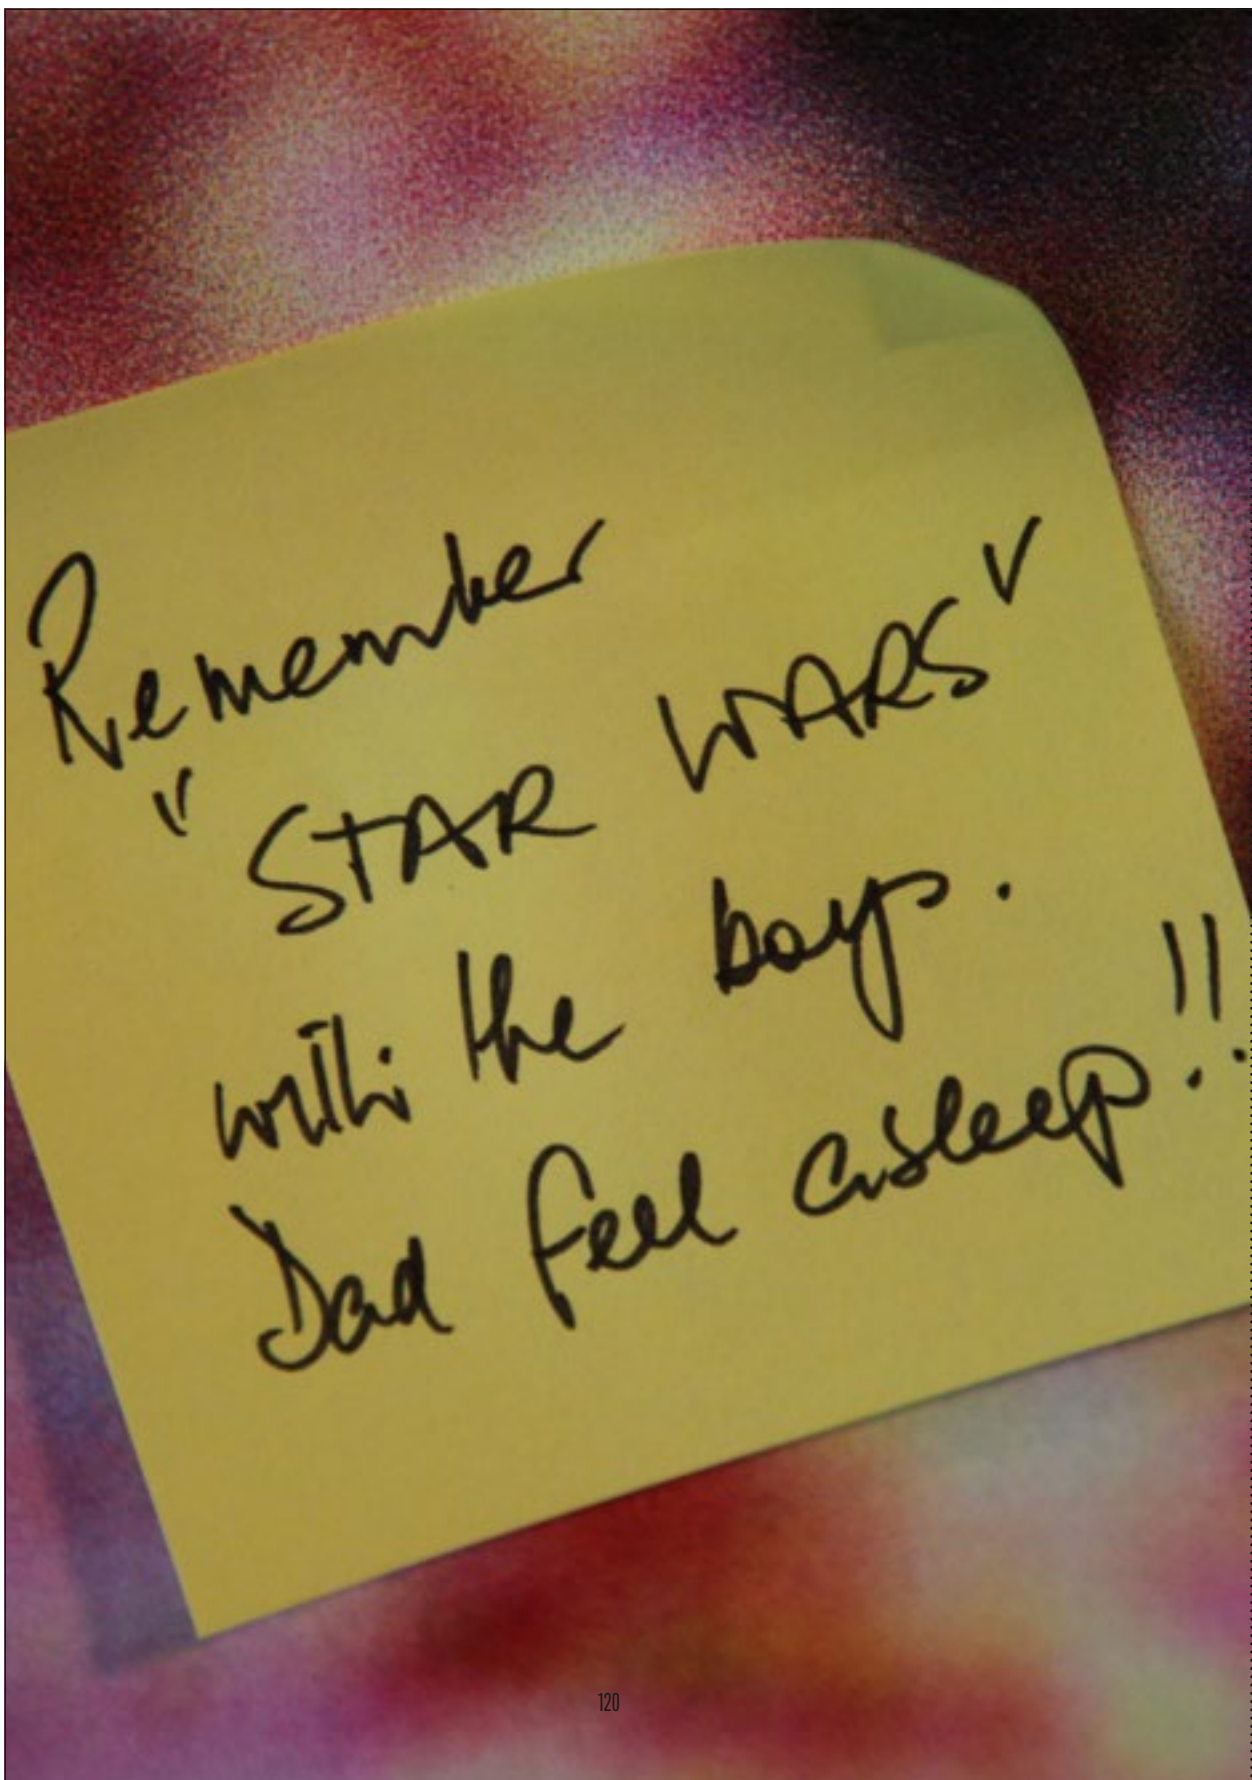 Remember
"STAR WARS"
with the boys.
Dad fell asleep!!
120